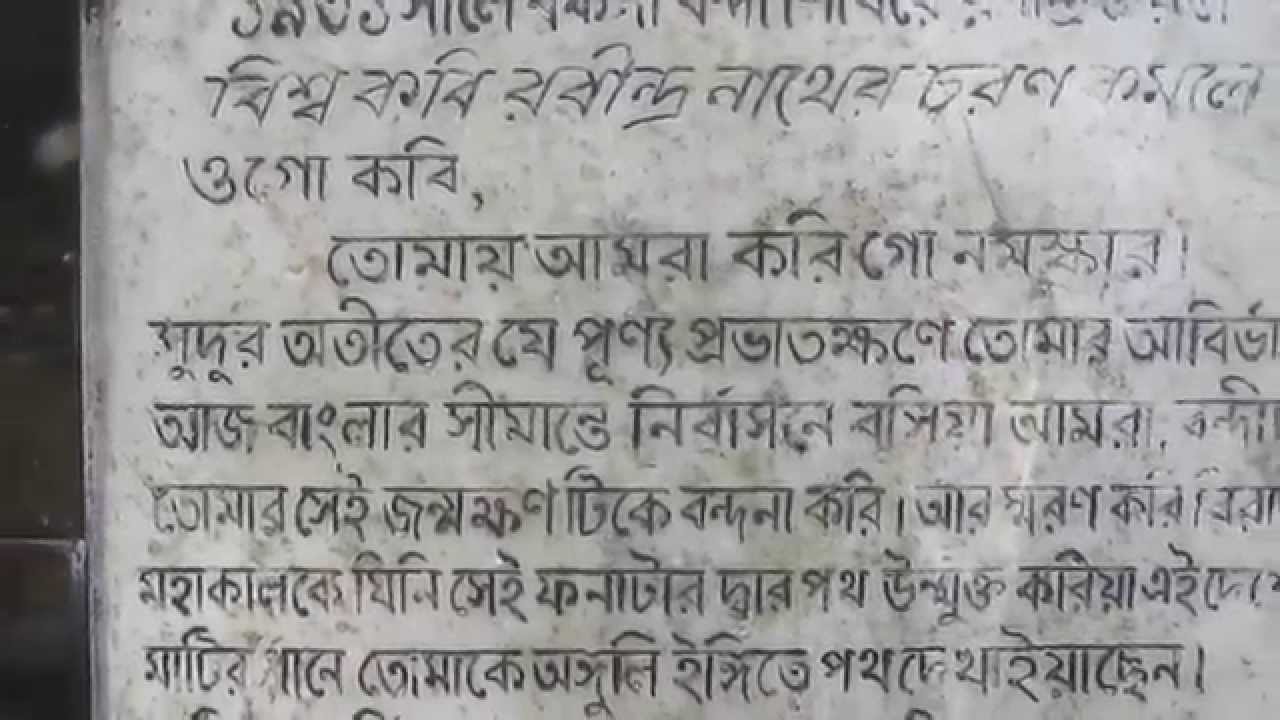 ১৯৩১ সালে বকসা বন্দী শিবিরে
বিশ্ব কবি রবীন্দ্র নাথের চরণ কমলে
ওগো কবি,
তোমায় আমরা করি গো নমস্কার।
সুদূর অতীতের যে পূণ্য প্রভাতক্ষণে তোমার আবির্ভা
আজ বাংলার সীমান্তে নির্বাসনে বসিয়া আমরা, বন্দী
তোমার সেই জন্মক্ষণটিকে বন্দনা করি। আর স্মরণ করি বিরা
মহাকালকে যিনি সেই ফনাটার দ্বার পথ উন্মুক্ত করিয়া এই দেশে
মাটির পানে তোমাকে অঙ্গুলি ইঙ্গিতে পথ দেখাইয়াছেন।